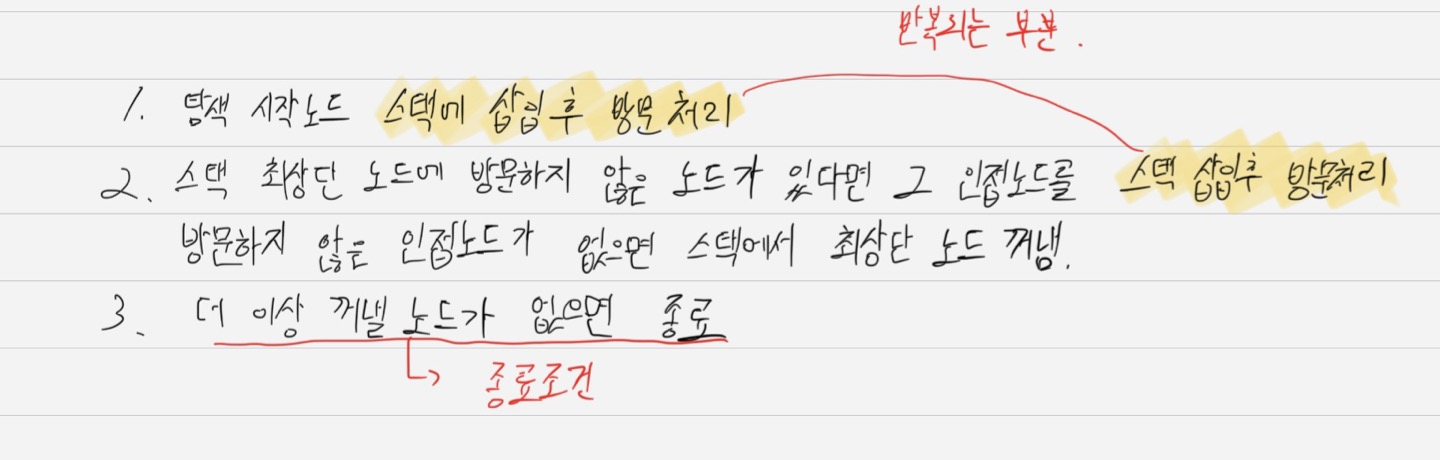 반복되는 부분.
1. 탐색 시작노드 스택에 삽입후 방문처리
2. 스택 최상단 노드에 방문하지 않은 노드가 있다면 그 인접노드를 스택 삽입후 방문처리
방문하지 않은 인접노드가 없으면 스택에서 최상단 노드 꺼냄.
3. 더 이상 꺼낼 노드가 없으면 종료
종료조건